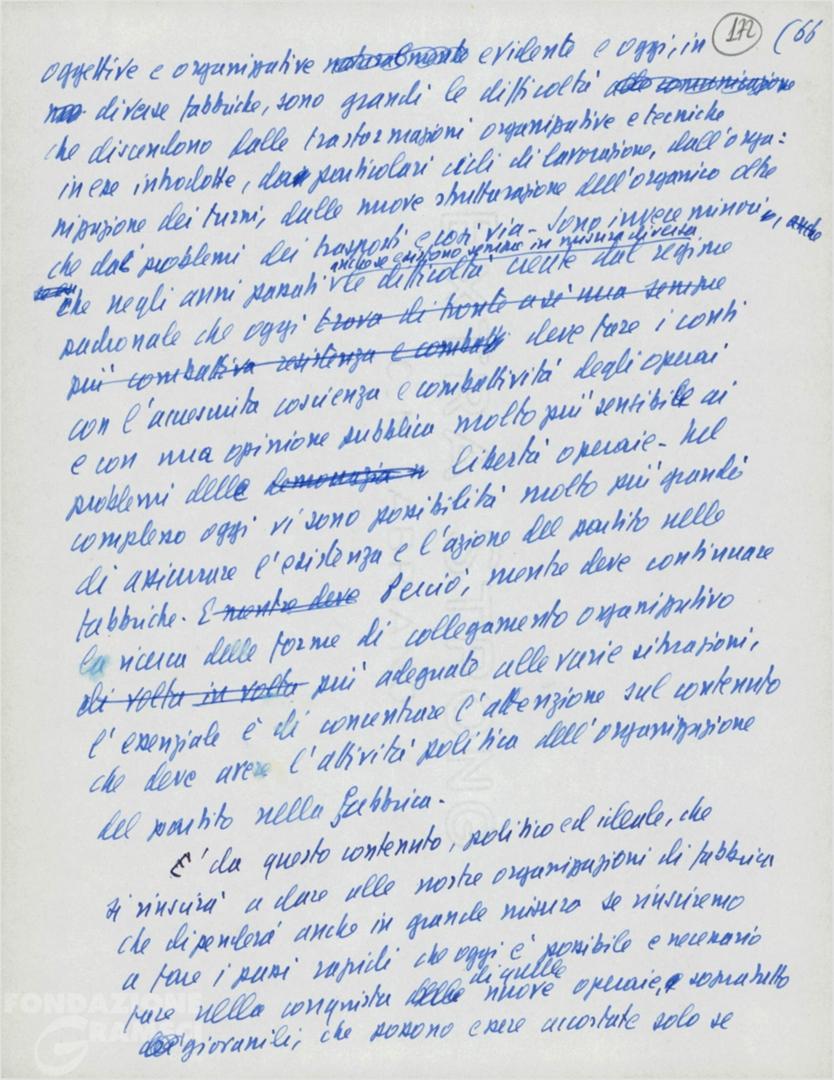 172 (66
oggettive e organizzative naturalmente evidente e oggi, in
diverse fabbriche, sono grandi le difficoltà alla comunicazione
che discendono dalle trasformazioni organizzative e tecniche
in esse introdotte, da particolari cicli di lavorazione, dall'orga=
nizzazione dei turni, dalle nuove strutturazione dell'organico oltre
che dai problemi dei trasporti e così via - Sono invece minori, anche
anche se esistono sempre in misura diversa
che negli anni passati le difficoltà create dal regime
padronale che oggi trova di fronte a sé una sempre
più combattiva resistenza e combatt deve fare i conti
con l'accresciuta coscienza e combattività degli operai
e con una opinione pubblica molto più sensibile ai
problemi delle democrazia libertà operaie - Nel
complesso oggi vi sono possibilità molto più grandi
di assicurare l'esistenza e l'azione del partito nelle
fabbriche. E mentre deve Perciò, mentre deve continuare
la ricerca delle forme di collegamento organizzativo
di volta in volta più adeguate alle varie situazioni,
l'essenziale è di concentrare l'attenzione sul contenuto
che deve avere l'attività politica dell'organizzazione
del partito nella fabbrica -
E' da questo contenuto, politico ed ideale, che
si riuscirà a dare alle nostre organizzazioni di fabbrica
che dipenderà anche in grande misura se riusciremo
a fare i passi rapidi che oggi è possibile e necessario
di quelle
fare nella conquista delle nuove operaie, e soprattutto
giovanili, che possono essere accostate solo se
FONDAZIONE
GRAMSCI
EXTRA STRONG